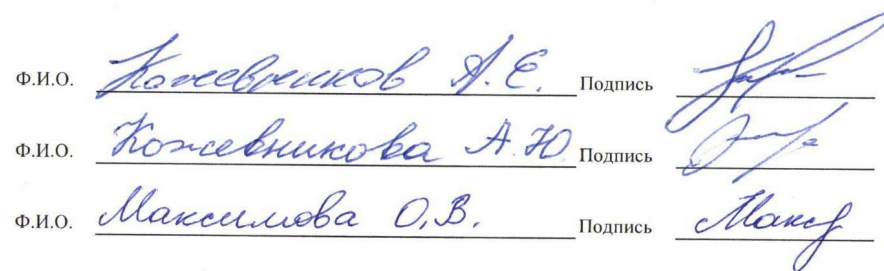 Ф.И.О. Кожевников А.Е. Подпись
Ф.И.О. Кожевникова А.Ю. Подпись
Ф.И.О. Максимова О.В. Подпись Макс